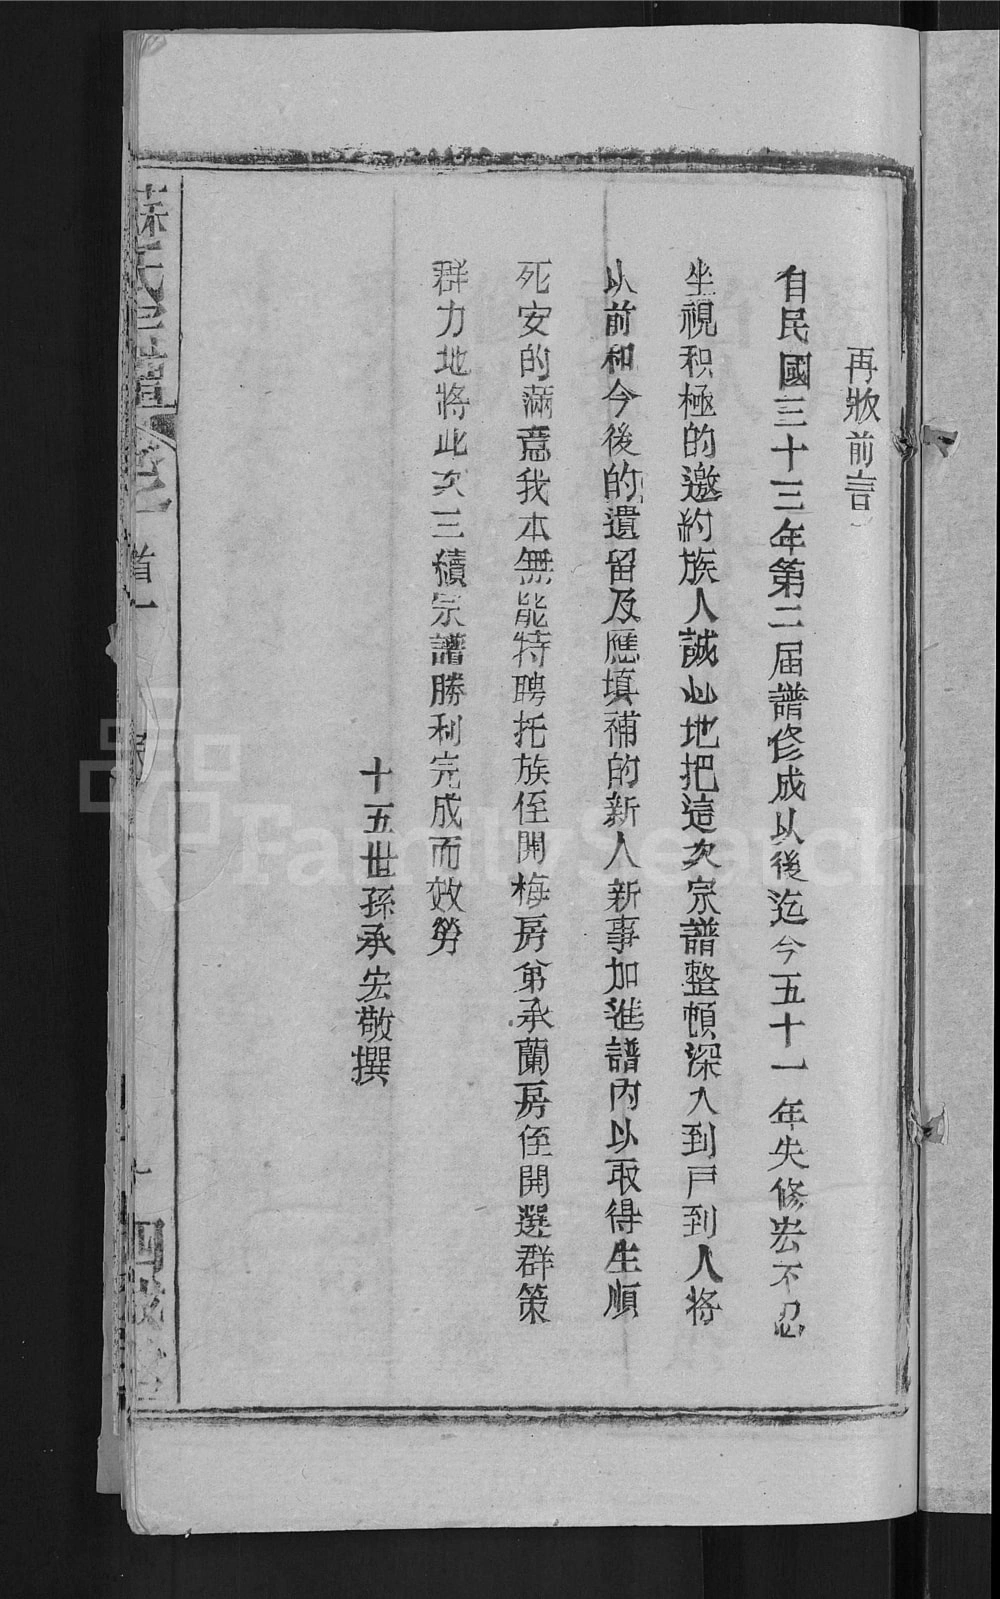 再牧前言
自民國三十三年第二届譜修成以後迄今五十一年失修宏不忍
坐視积極的邀約族人誠心地把這次宗譜整頓深入到戸到人将
以前和今後的遺留及應填補的新人新事加進譜内以取得生順
死安的滿意我本無能特聘托族侄開梅房弟承蘭房侄開選群策
群力地將此次三續宗譜勝利完成而效勞
十五世孫承宏敬撰
蘇氏宗譜
卷之
首一
FamilySearch